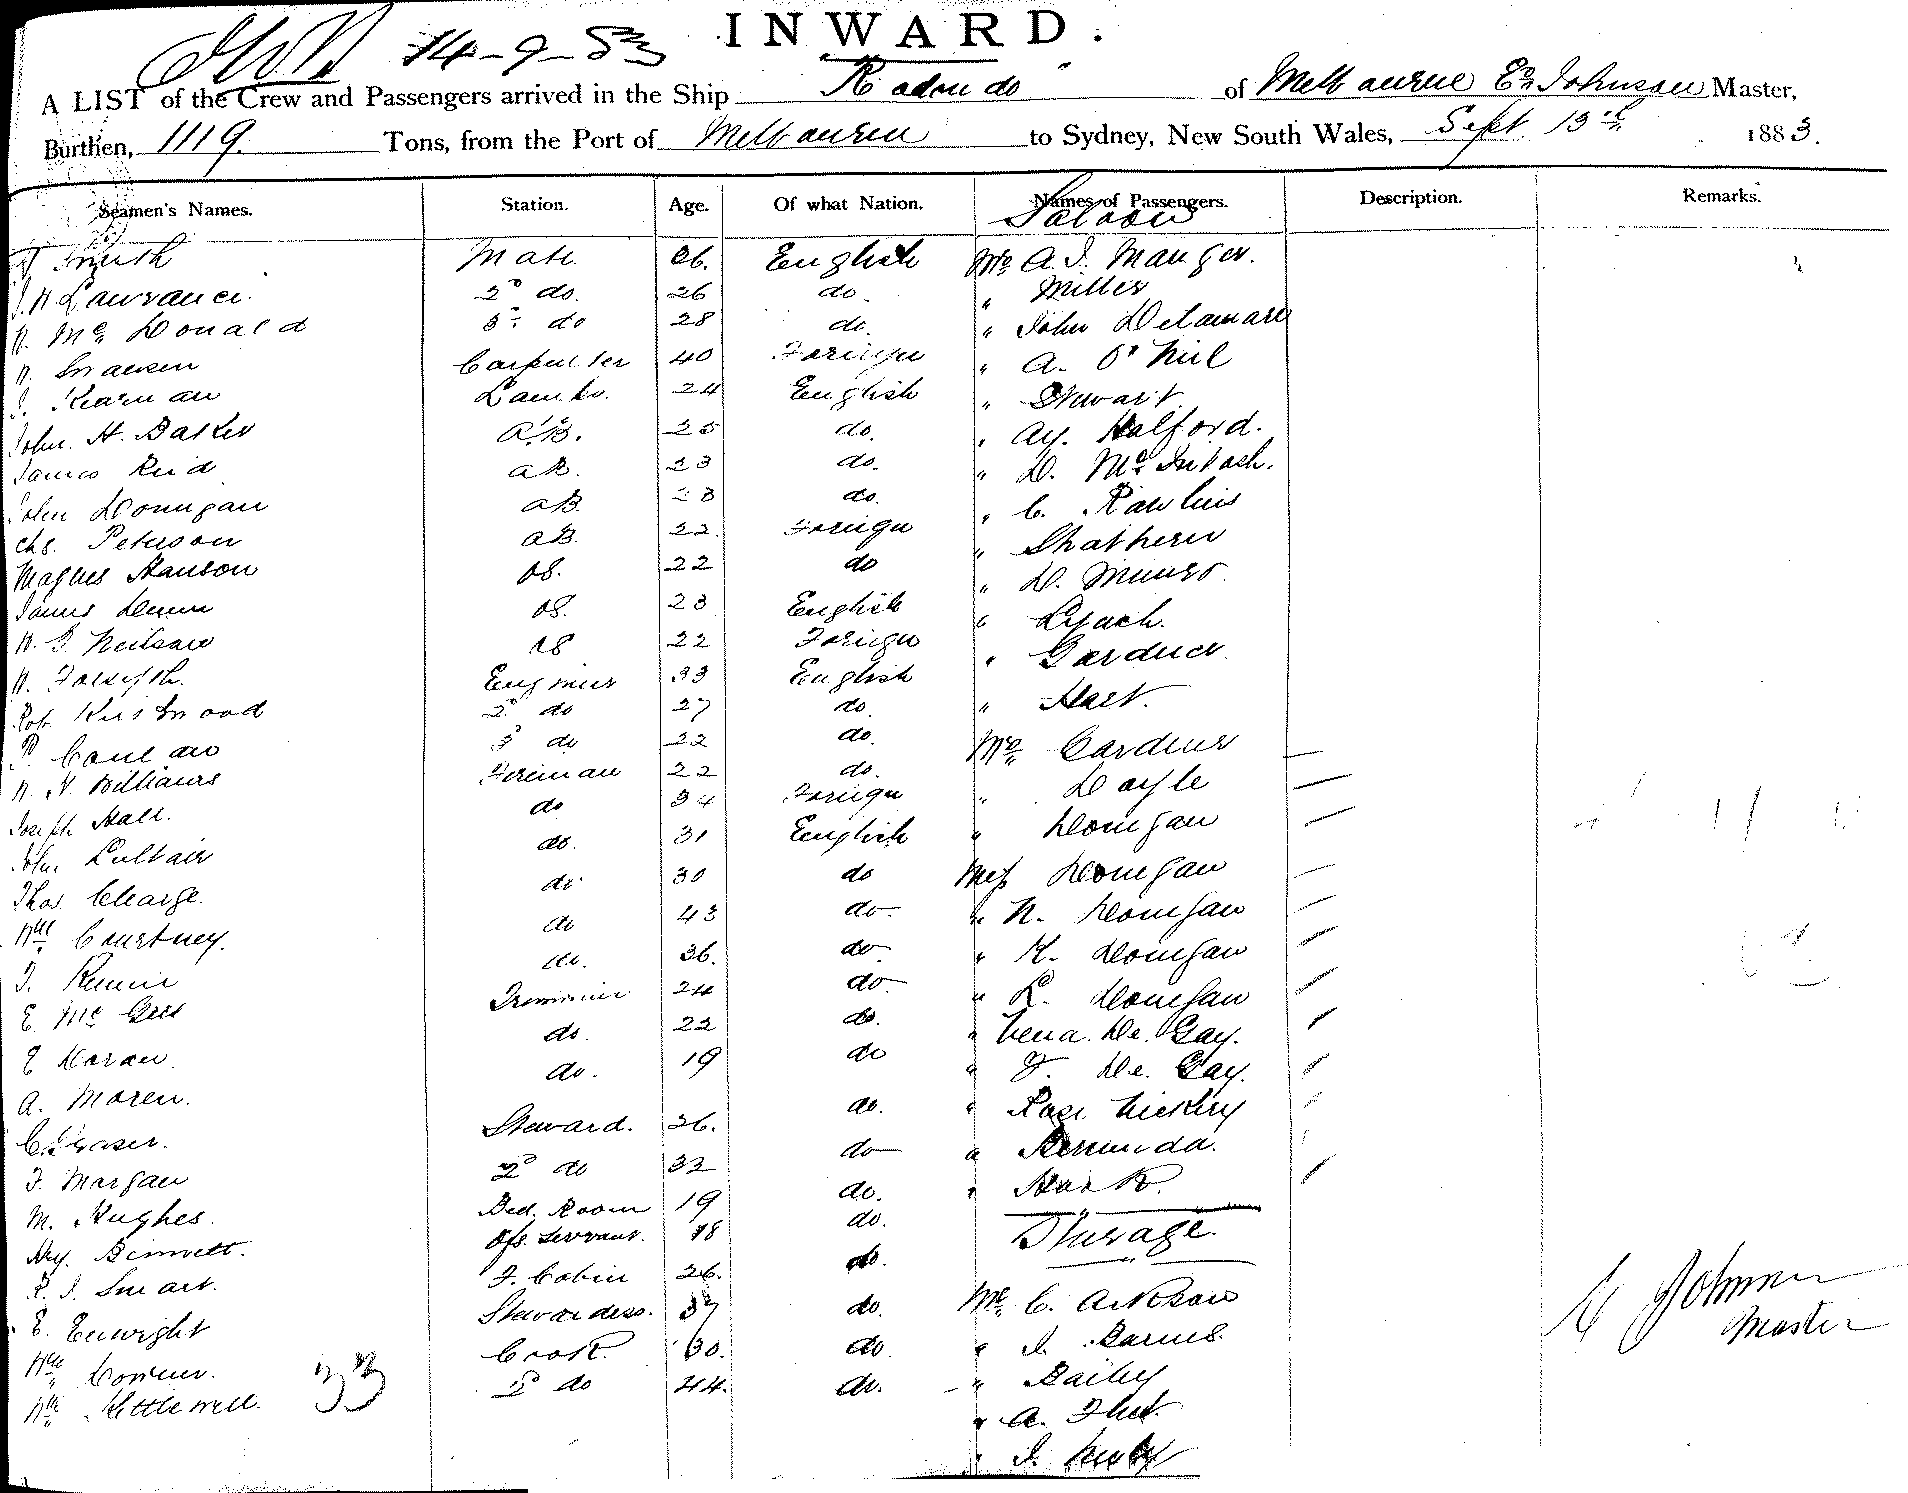 14-9-83 INWARD.
A LIST of the Crew and Passengers arrived in the Ship Rodondo of Melbourne Johnson Master,
Burthen, 1119. Tons, from the Port of Melbourne to Sydney, New South Wales, Sept 13th 1883.
Seamen's Names. Station. Age. Of what Nation. Names of Passengers. Description. Remarks.
Saloon
Mate 26. English Mr A. J. Manger.
Lawrance. 2d do. 26 do. " Miller
Mc Donald 3d do 28 do. " John Delamare
Carpenter 40 Foreign " A. O'Neil
Lamps. 24 English " Stewart
John. H. Baker A.B. 25 do. " Ay. Halford.
James Reid AB. 23 do. " D. Mc Intosh.
John Donegan AB. 28 do. " C. Rawlins
Chs. Peterson AB. 22. Foreign "
Magnus Hanson OS. 22 do " D. Munro
James Dunn OS. 23 English " Lynch.
Neilson OS 22 Foreign " Gardner
Forsyth. Engineer 33 English " Hart.
Robt Kirkwood 2d do 27 do. Mrs Gardner
3d do 22 do. " Doyle
Williams Fireman 22 do. " Donegan
Joseph Hall. do 34 Foreign Miss Donegan
John do. 31 English " N. Donegan
Thos. Charge. do 30 do " K. Donegan
Wm Courtney. do 43 do " L. Donegan
Rennie do. 36. do " De. Gay.
E. Mc Gees Trimmer 24 do " F. De. Gay.
E Doran do. 22 do. " Rose
A. Moren. do. 19 do "
C. Fraser. Steward. 26. do. " Hart
F. Morgan 2d do 32 do Steerage.
M. Hughes. Bed. Room 19 do.
Hy. Bennett. Ofs. Servant. 18 do.
R. J. Smart. F. Cabin 26. do. Mr C. Arkson
E. Enwright Stewardess. 37 do. " J. Barnes.
Wm Cook. 30. do " Bailey
Wm Kettlewell. 33 2d do 44. do. " A.
" J.
Johnson
Master